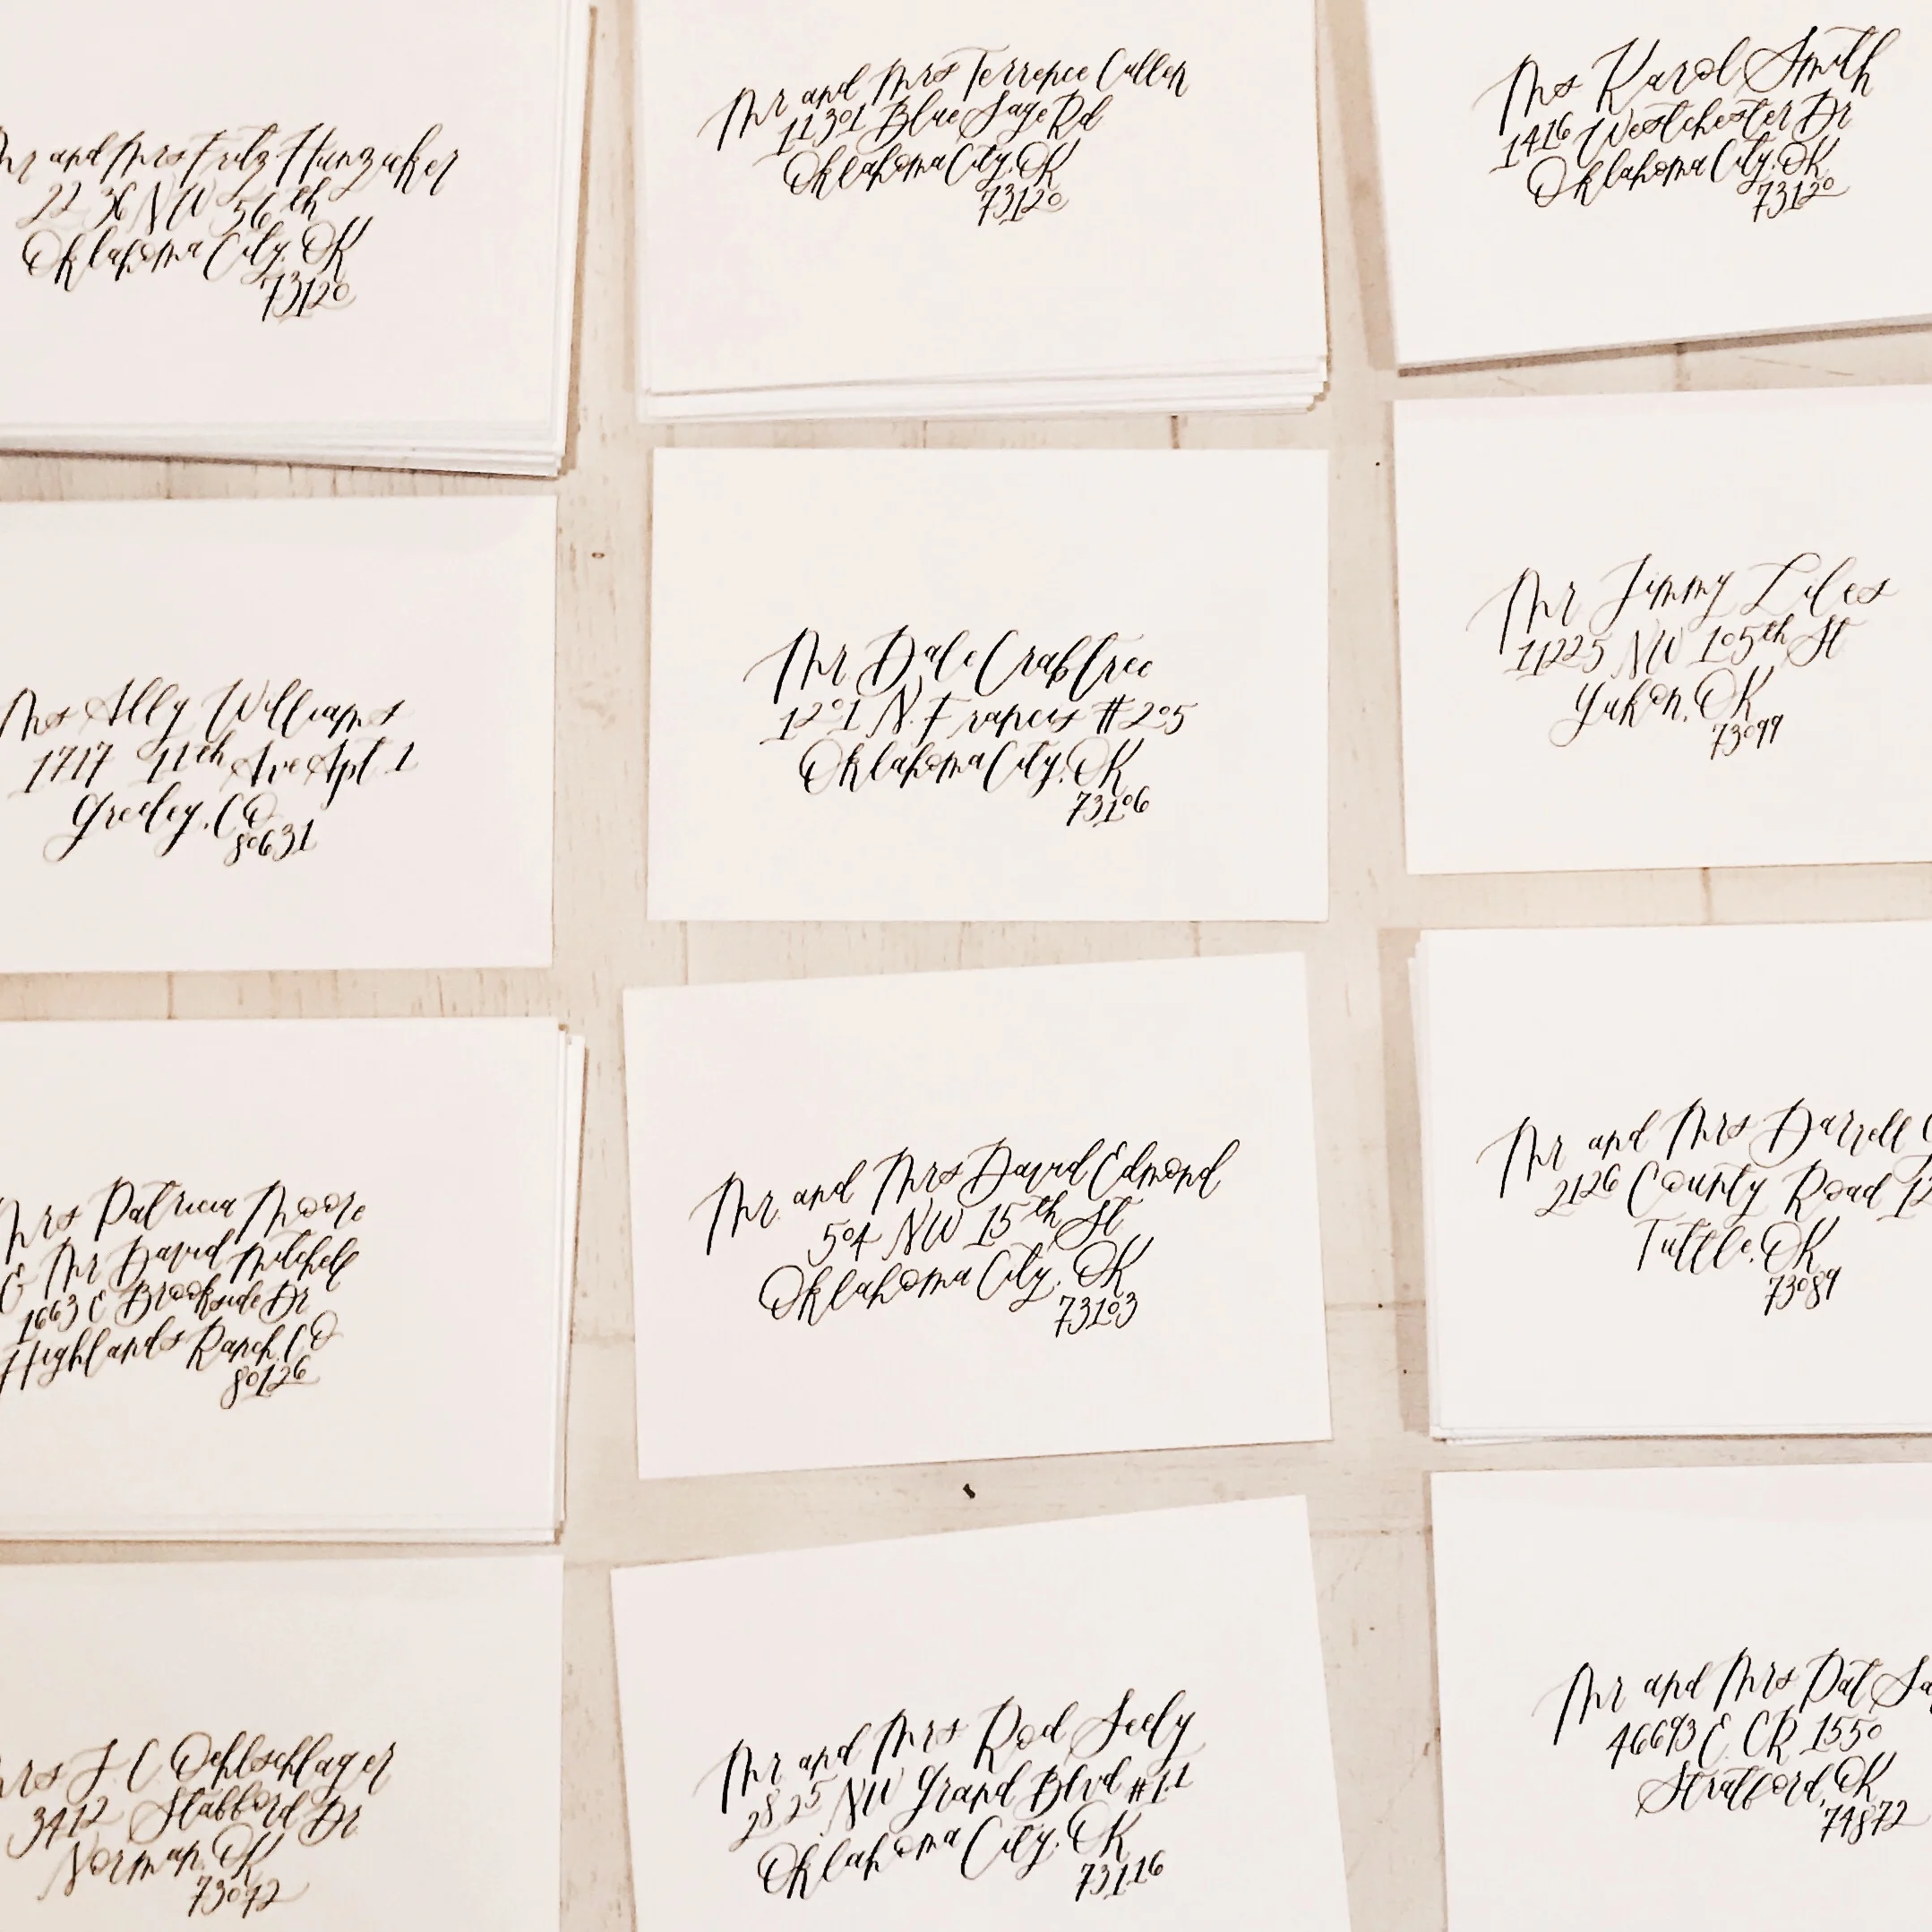 Mr and Mrs Fritz Hunzicker
2236 NW 56th
Oklahoma City, OK
73120
Mr and Mrs Terrence Cullen
11301 Blue Sage Rd
Oklahoma City, OK
73120
Ms Karol Smith
1416 Westchester Dr
Oklahoma City, OK
73120
Ms Ally Williams
1717 11th Ave Apt 1
Greeley, CO
80631
Mr Dale Crabtree
1201 N. Francis #205
Oklahoma City, OK
73106
Mr Jimmy Liles
11225 NW 105th St
Yukon, OK
73099
Mrs Patricia Moore
& Mr David Mitchell
1663 E Brookside Dr
Highlands Ranch, CO
80126
Mr and Mrs David Edmond
504 NW 15th St
Oklahoma City, OK
73103
Mr and Mrs Darrell
2126 County Road
Tuttle, OK
73089
Mrs J. C Oehlschlager
3412 Stafford Dr
Norman, OK
73072
Mr and Mrs Rod Seely
2825 NW Grand Blvd #11
Oklahoma City, OK
73116
Mr and Mrs Pat
46693 E. CR 1550
Stratford, OK
74872